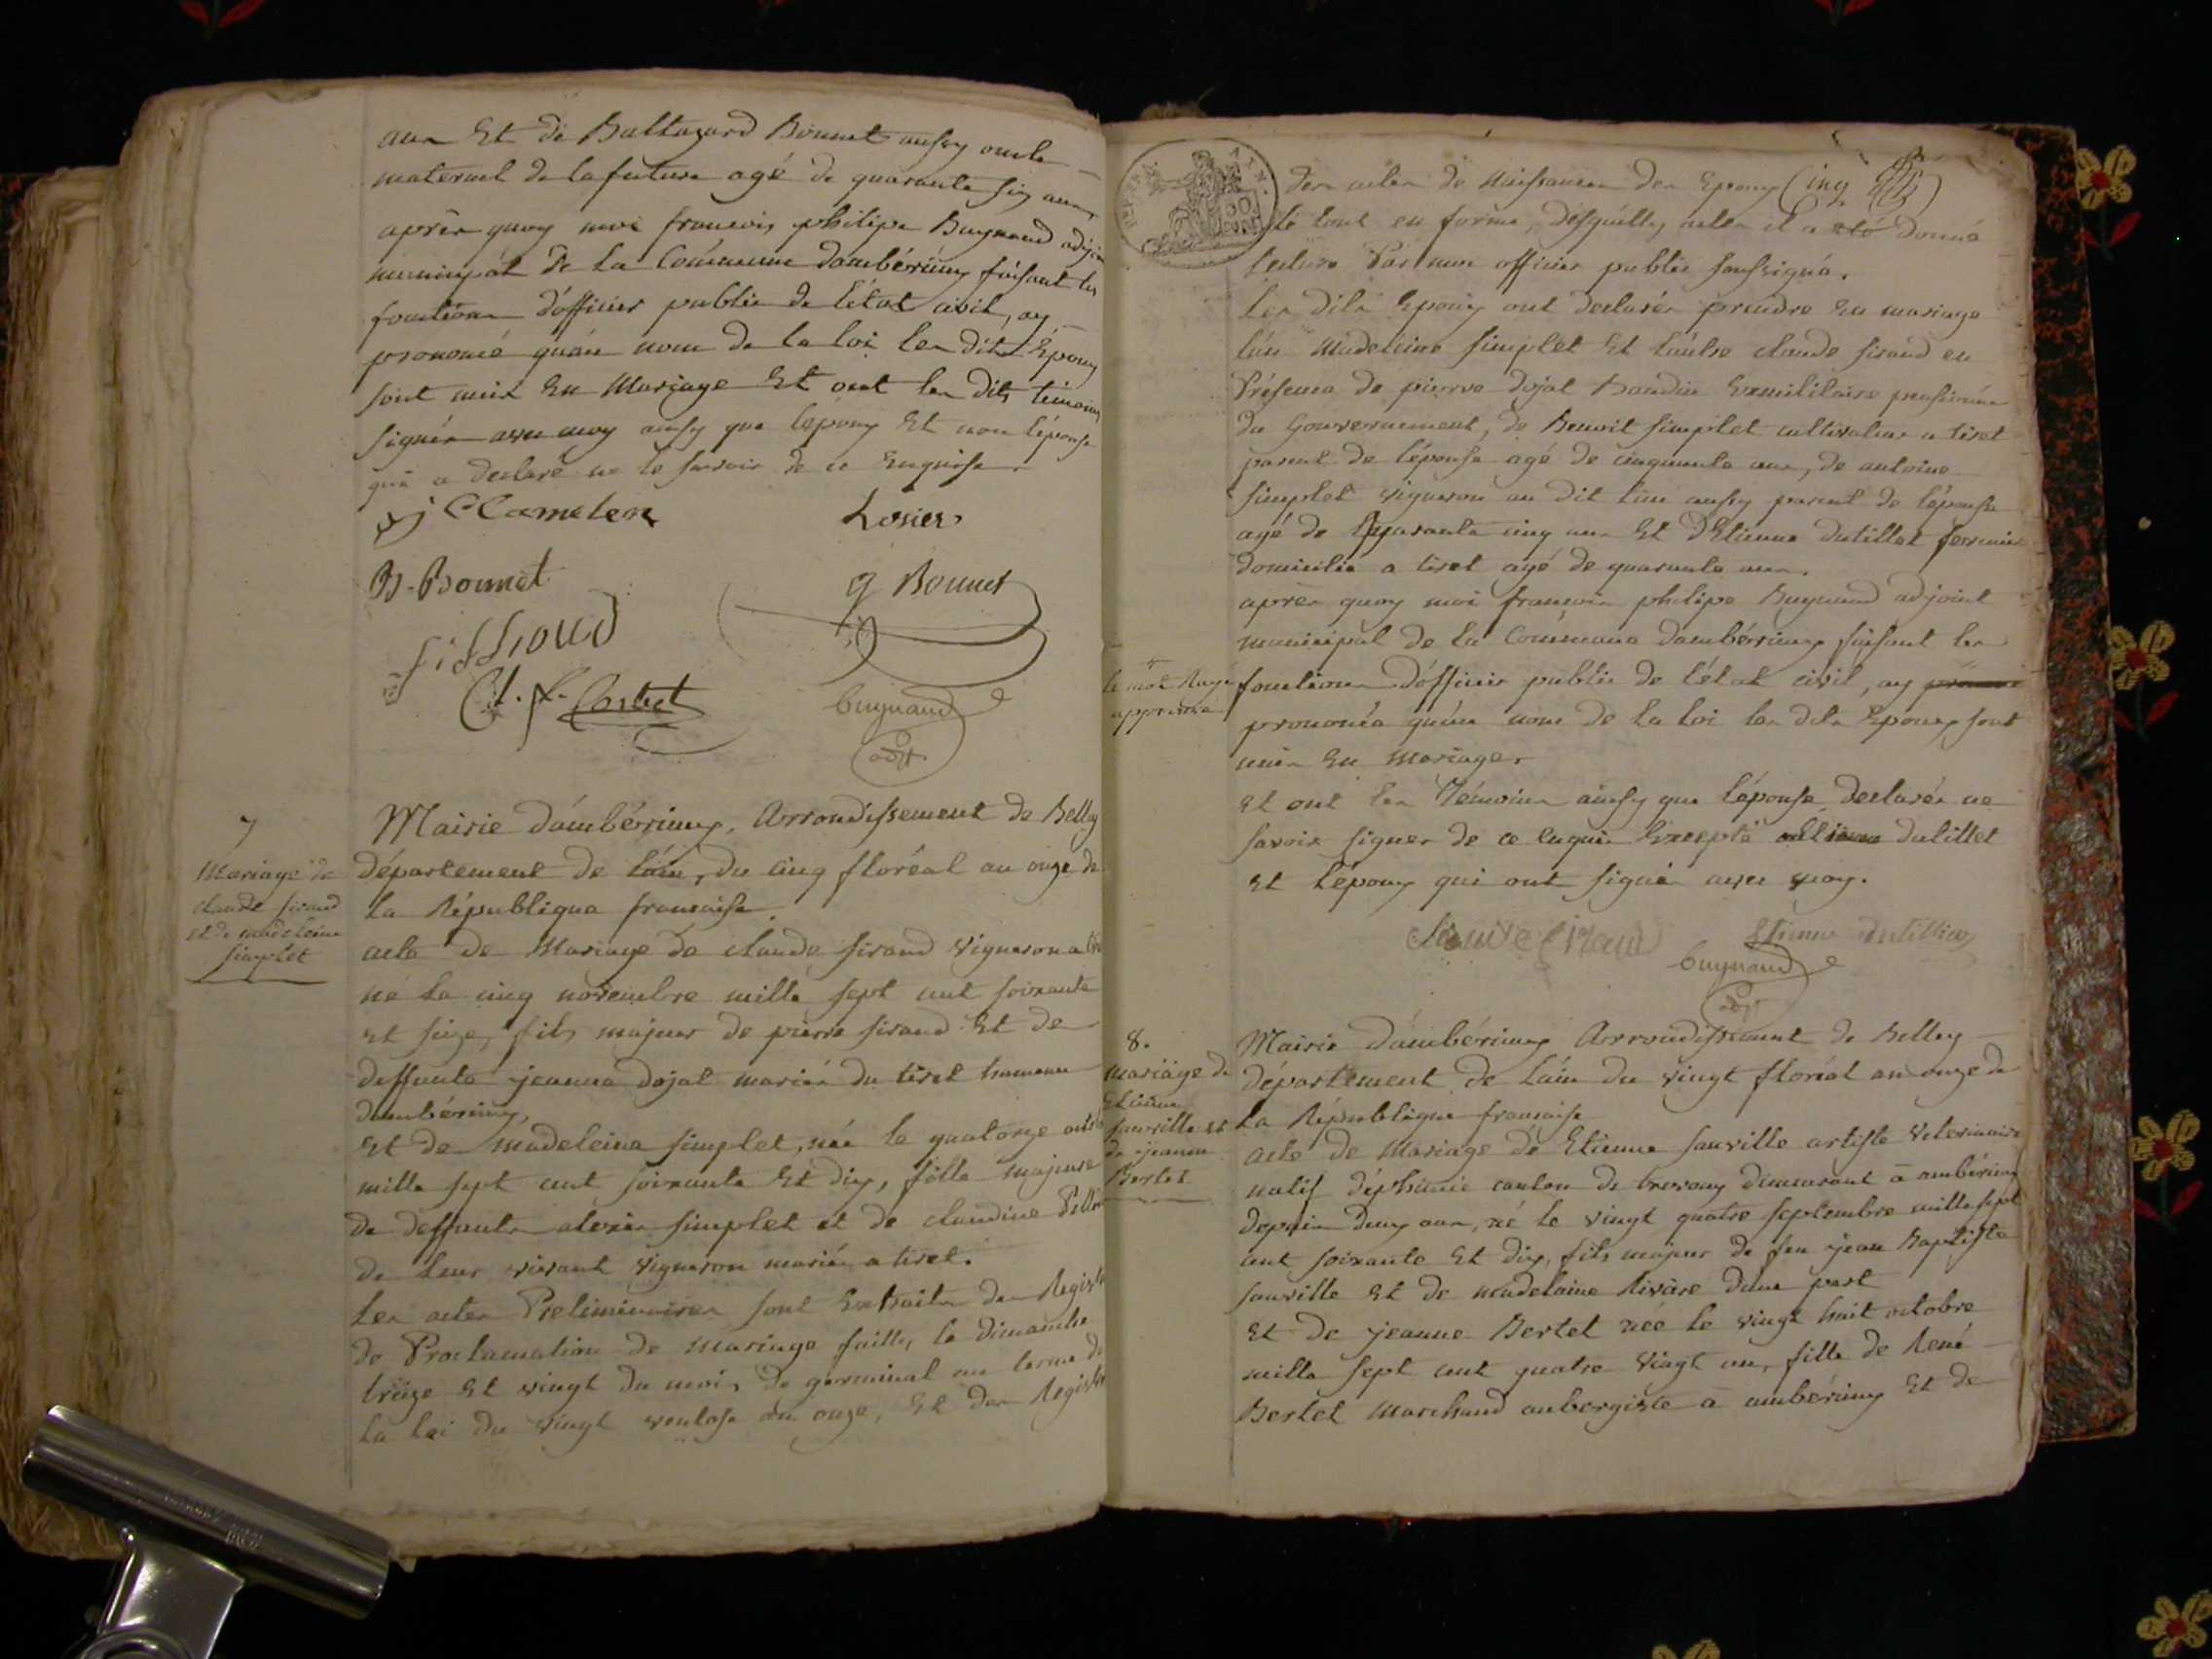 ans Et de Baltazard Bonnet aussy oncle
maternel de la future agé de quarante six ans,
après quoy moi francois philipe Buynand adjoin
municipal de la Commune d'ambérieux faisant les
fonctions d'officier public de l'état civil, ay
prononcé qu'au nom de la loi les dits Epoux
sont unis En Mariage Et ont les dits témoins
signés avec moy ainsy que l'epoux Et non l'épouse
qui a declaré ne le savoir de ce Enquise.
Losier
B. Bonnet
g Bonnet
Buynaud
adjt
7
Mariage de
claude sirand
et de madeleine
simplet
Mairie d'ambérieux, Arrondissement de Belley
département de l'ain, du cinq floréal an onze de
la République francaise.
acte de Mariage de claude sirand vigneron a
né le cinq novembre mille sept cent soixante
et seize, fils majeur de pierre sirand Et de
deffunte jeanne dojat mariés du tiret hameau
d'ambérieux,
Et de madeleine simplet, née le quatorze
mille sept cent soixante Et dix, fille majeure
de deffunts alexis simplet et de claudine
de leur vivant vigneron mariés a tiret.
Les actes Preliminaires sont Extraits des Registre
de Proclamation de mariage faitte, le dimanche
treize Et vingt du mois de germinal au terme de
la loi du vingt ventose an onze, Et des Registre
des actes de Naissances des Epoux Cinq
le tout en forme, desquelles actes il a eté donné
lecture Par moi officier public soussigné.
les dits Epoux ont declarés prendre En mariage
l'un Madeleine simplet Et l'autre claude sirand en
Présence de pierre dojat Exmilitaire pensionné
du Gouvernement, de Benoit simplet cultivateur a tiret
parent de l'épouse agé de cinquante ans, de antoine
simplet vigneron au dit lieu aussy parent de l'épouse
agé de quarante cinq ans Et d'Etienne dutillet
domicilié a tiret agé de quarante ans.
après quoy moi francois philipe Buynand adjoint
municipal de la Commune d'ambérieux faisant les
le mot Rayé
approuvé
fonctions d'officier public de l'état civil, ay
prononcé qu'au nom de la loi les dits Epoux sont
unis En mariage.
Et ont les Témoins ainsy que l'épouse declarés ne
savoir signer de ce Enquis Excepté dutillet
Et l'époux qui ont signés avec moy.
claude sirand
Buynaud
8.
mariage de
Etienne
sauville et
de jeanne
Bertet
Mairie d'ambérieux Arrondissement de Belley
département de l'ain du vingt floréal an onze de
la République francaise
acte de Mariage de Etienne sauville artiste veterinaire
natif canton de trevoux demeurant à ambérieux
depuis deux ans, né le vingt quatre septembre mille sept
cent soixante Et dix, fils majeur de feu jean Baptiste
sauville Et de madelaine Rivière d'une part
Et de jeanne Bertet née le vingt huit octobre
mille sept cent quatre vingt un, fille de René
Bertet Marchand aubergiste à ambérieux Et de